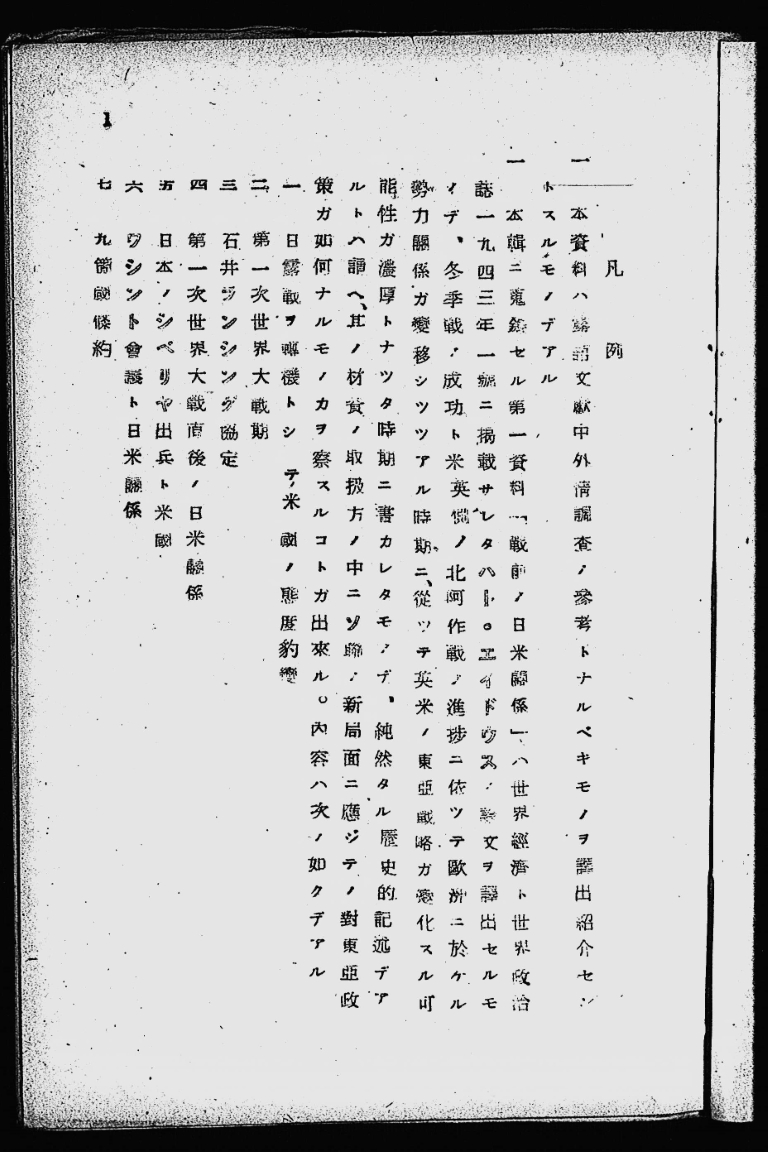 凡例
一 本資料ハ露語文獻中外情調査ノ參考トナルベキモノヲ譯出紹介セン
トスルモノデアル
一 本輯ニ蒐錄セル第一資料「戰前ノ日米關係」ハ世界經濟ト世界政治
誌一九四三年一號ニ揭載サレタハトエイドウスノ論文ヲ譯出セルモ
ノデ、冬季戰ノ成功ト米英側ノ北阿作戰ノ進捗ニ依ツテ歐洲ニ於ケル
勢力關係ガ變移シツツアル時期ニ、從ツテ英米ノ東亞戰略ガ變化スル可
能性ガ濃厚トナツタ時期ニ書カレタモノデ、純然タル歷史的記述デア
ルトハ謂ヘ、其ノ材料ノ取扱方ノ中ニソ聯ノ新局面ニ應ジテノ對東亞政
策ガ如何ナルモノカヲ察スルコトガ出來ル。內容ハ次ノ如クデアル
一 日露戰ヲ轉機トシテノ米國ノ態度豹變
二 第一次世界大戰期
三 石井ランシング協定
四 第一次世界大戰直後ノ日米關係
五 日本ノシベリヤ出兵ト米國
六 ワシントン會議ト日米關係
七 九箇國條約
1